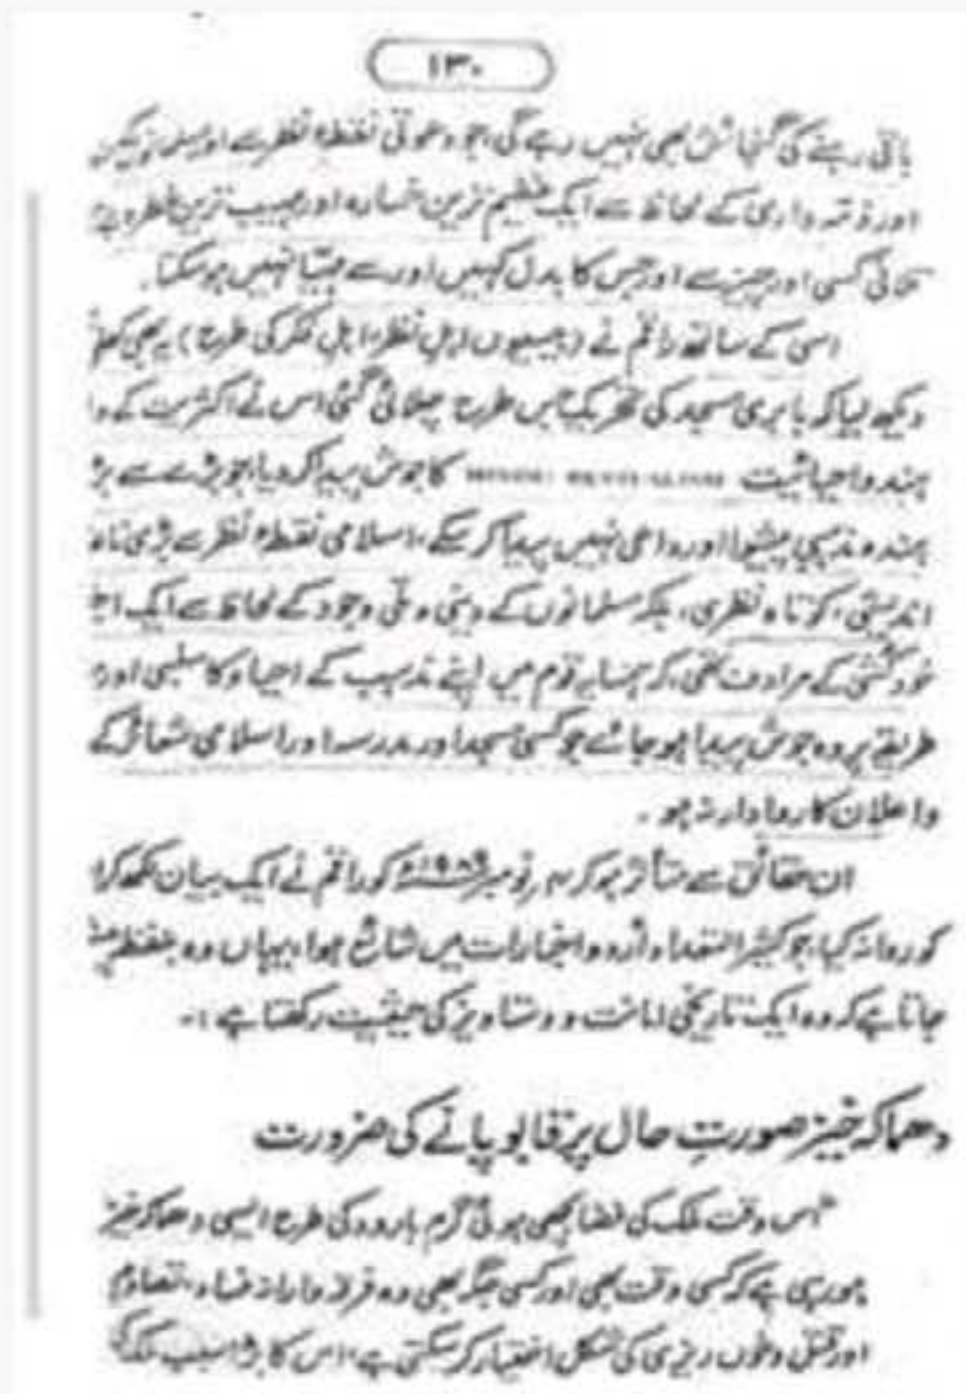 ۱۳۰
باقی رہنے کی گنجائش بھی نہیں رہے گی، جو دعوتی نقطۂ نظر سے اور
اور ذمہ داری کے لحاظ سے ایک عظیم ترین خسارہ اور مہیب ترین خطرہ ہے
تلافی کسی اور چیز سے اور جس کا بدل کہیں اور سے مہیا نہیں ہو سکتا۔
اسی کے ساتھ راقم نے (بیسیوں اہلِ نظر و اہلِ فکر کی طرح) یہ بھی
دیکھ لیا کہ بابری مسجد کی تحریک جس طرح چلائی گئی اس نے اکثریت کے
ہندو احیائیت HINDU REVIVALISM کا جوش پیدا کر دیا، جو بڑے سے بڑ
ہندو مذہبی پیشوا اور داعی نہیں پیدا کر سکے، اسلامی نقطۂ نظر سے بڑی نا
اندیشی، کوتاہ نظری، بلکہ مسلمانوں کے دینی و ملی وجود کے لحاظ سے ایک
خودکشی کے مرادف تھی، کہ ہمسایہ قوم میں اپنے مذہب کے احیاء کا سلبی اور
طریقے پر وہ جوش پیدا ہو جائے جو کسی مسجد اور مدرسہ اور اسلامی شعائر کے
و اعلان کا روادار نہ ہو۔
ان حقائق سے متأثر ہو کر ۴ نومبر ۱۹۸۹ء کو راقم نے ایک بیان لکھ کر
کو روانہ کیا، جو کثیر التعداد اُردو اخبارات میں شائع ہوا، یہاں وہ بلفظہ
جاتا ہے کہ وہ ایک تاریخی امانت و دستاویز کی حیثیت رکھتا ہے:۔
دھماکہ خیز صورتِ حال پر قابو پانے کی ضرورت
"اس وقت ملک کی فضا بچھی ہوئی گرم بارود کی طرح ایسی دھماکہ خیز
ہو رہی ہے کہ کسی وقت بھی اور کسی جگہ بھی وہ فرقہ وارانہ فساد، تصادم
اور قتل و خوں ریزی کی شکل اختیار کر سکتی ہے، اس کا بڑا سبب ملک